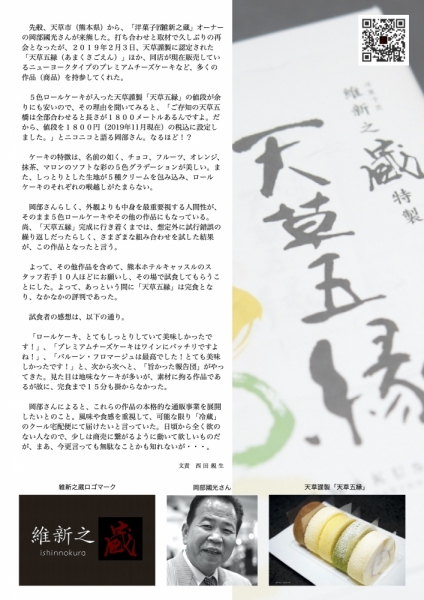 先般、天草市（熊本県）から、「洋菓子の維新之蔵」オーナー
の岡部國光さんが来熊した。打ち合わせと取材で久しぶりの再
会となったが、２０１９年２月３日、天草謹製に認定された
「天草五縁（あまくさごえん）」ほか、同店が現在販売してい
るニューヨークタイプのプレミアムチーズケーキなど、多くの
作品（商品）を持参してくれた。
５色ロールケーキが入った天草謹製「天草五縁」の値段が余
りにも安いので、その理由を聞いてみると、「ご存知の天草五
橋は全部合わせると長さが１８００メートルあるんですよ。だ
から、値段を１８００円（2019年11月現在）の税込に設定し
ました。」とニコニコと語る岡部さん。なるほど！？
ケーキの特徴は、名前の如く、チョコ、フルーツ、オレンジ、
抹茶、マロンのソフトな彩の５色グラデーションが美しい。ま
た、しっとりとした生地が５種クリームを包み込み、ロール
ケーキのそれぞれの喉越しがたまらない。
岡部さんらしく、外観よりも中身を最重要視する人間性が、
そのまま５色ロールケーキやその他の作品にもなっている。
尚、「天草五縁」完成に行き着くまでは、想定外に試行錯誤の
繰り返しだったらしく、さまざまな組み合わせを試した結果
が、この作品となったと言う。
よって、その他作品を含めて、熊本ホテルキャッスルのス
タッフ若手１０人ほどにお願いし、その場で試食してもらうこ
とにした。よって、あっという間に「天草五縁」は完食とな
り、なかなかの評判であった。
試食者の感想は、以下の通り。
「ロールケーキ、とてもしっとりしていて美味しかったで
す！」、「プレミアムチーズケーキはワインにバッチリですよ
ね！」、「バルーン・フロマージュは最高でした！とても美味
しかったです！」と、次から次へと、「旨かった報告団」がやっ
てきた。見た目は地味なケーキが多いが、素材に拘る作品であ
るが故に、完食まで１５分も掛からなかった。
岡部さんによると、これらの作品の本格的な通販事業を展開
したいとのこと。風味や食感を重視して、可能な限り「冷蔵」
のクール宅配便にて届けたいと言っていた。日頃から全く欲の
ない人なので、少しは商売に繋がるように動いて欲しいものだ
が、まあ、今更言っても無駄なことかも知れないが・・・。
文責　西田親生
洋菓子の
維新之蔵
特製
天草五縁
維新之蔵ロゴマーク
岡部國光さん
天草謹製「天草五縁」
維新之蔵
ishinnokura